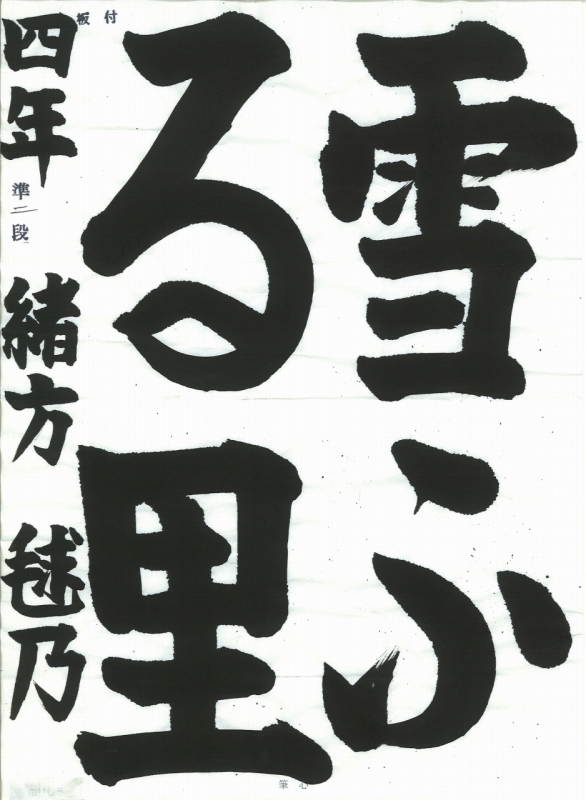 雪ふ
る里
四年 準二段 緒方 毬乃
板付
筆心